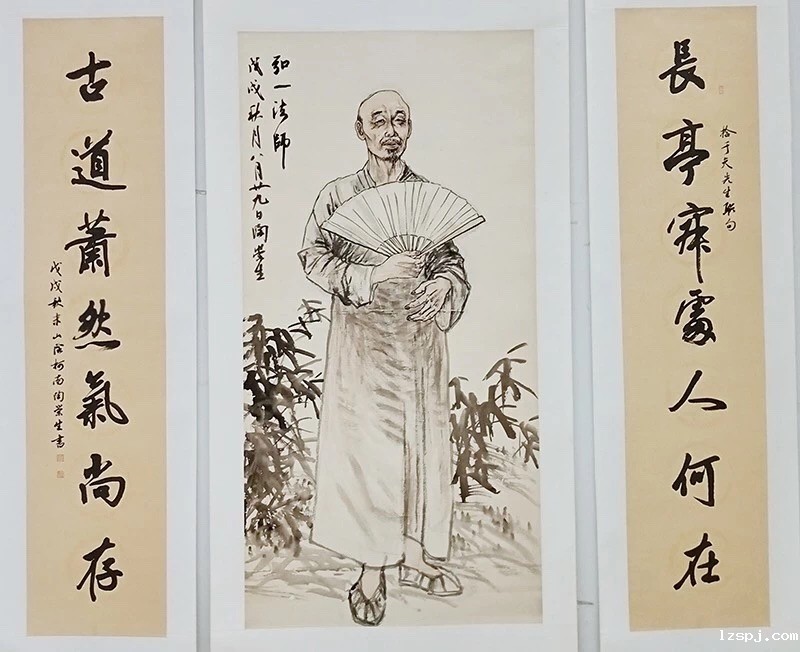 長亭寂處人何在
拾于天先生聯句
弘一法師
戊戌秋月八月廿九日陶崇生
古道蕭然氣尚存
戊戌秋末山陰柯南陶崇生書
lzspj.com